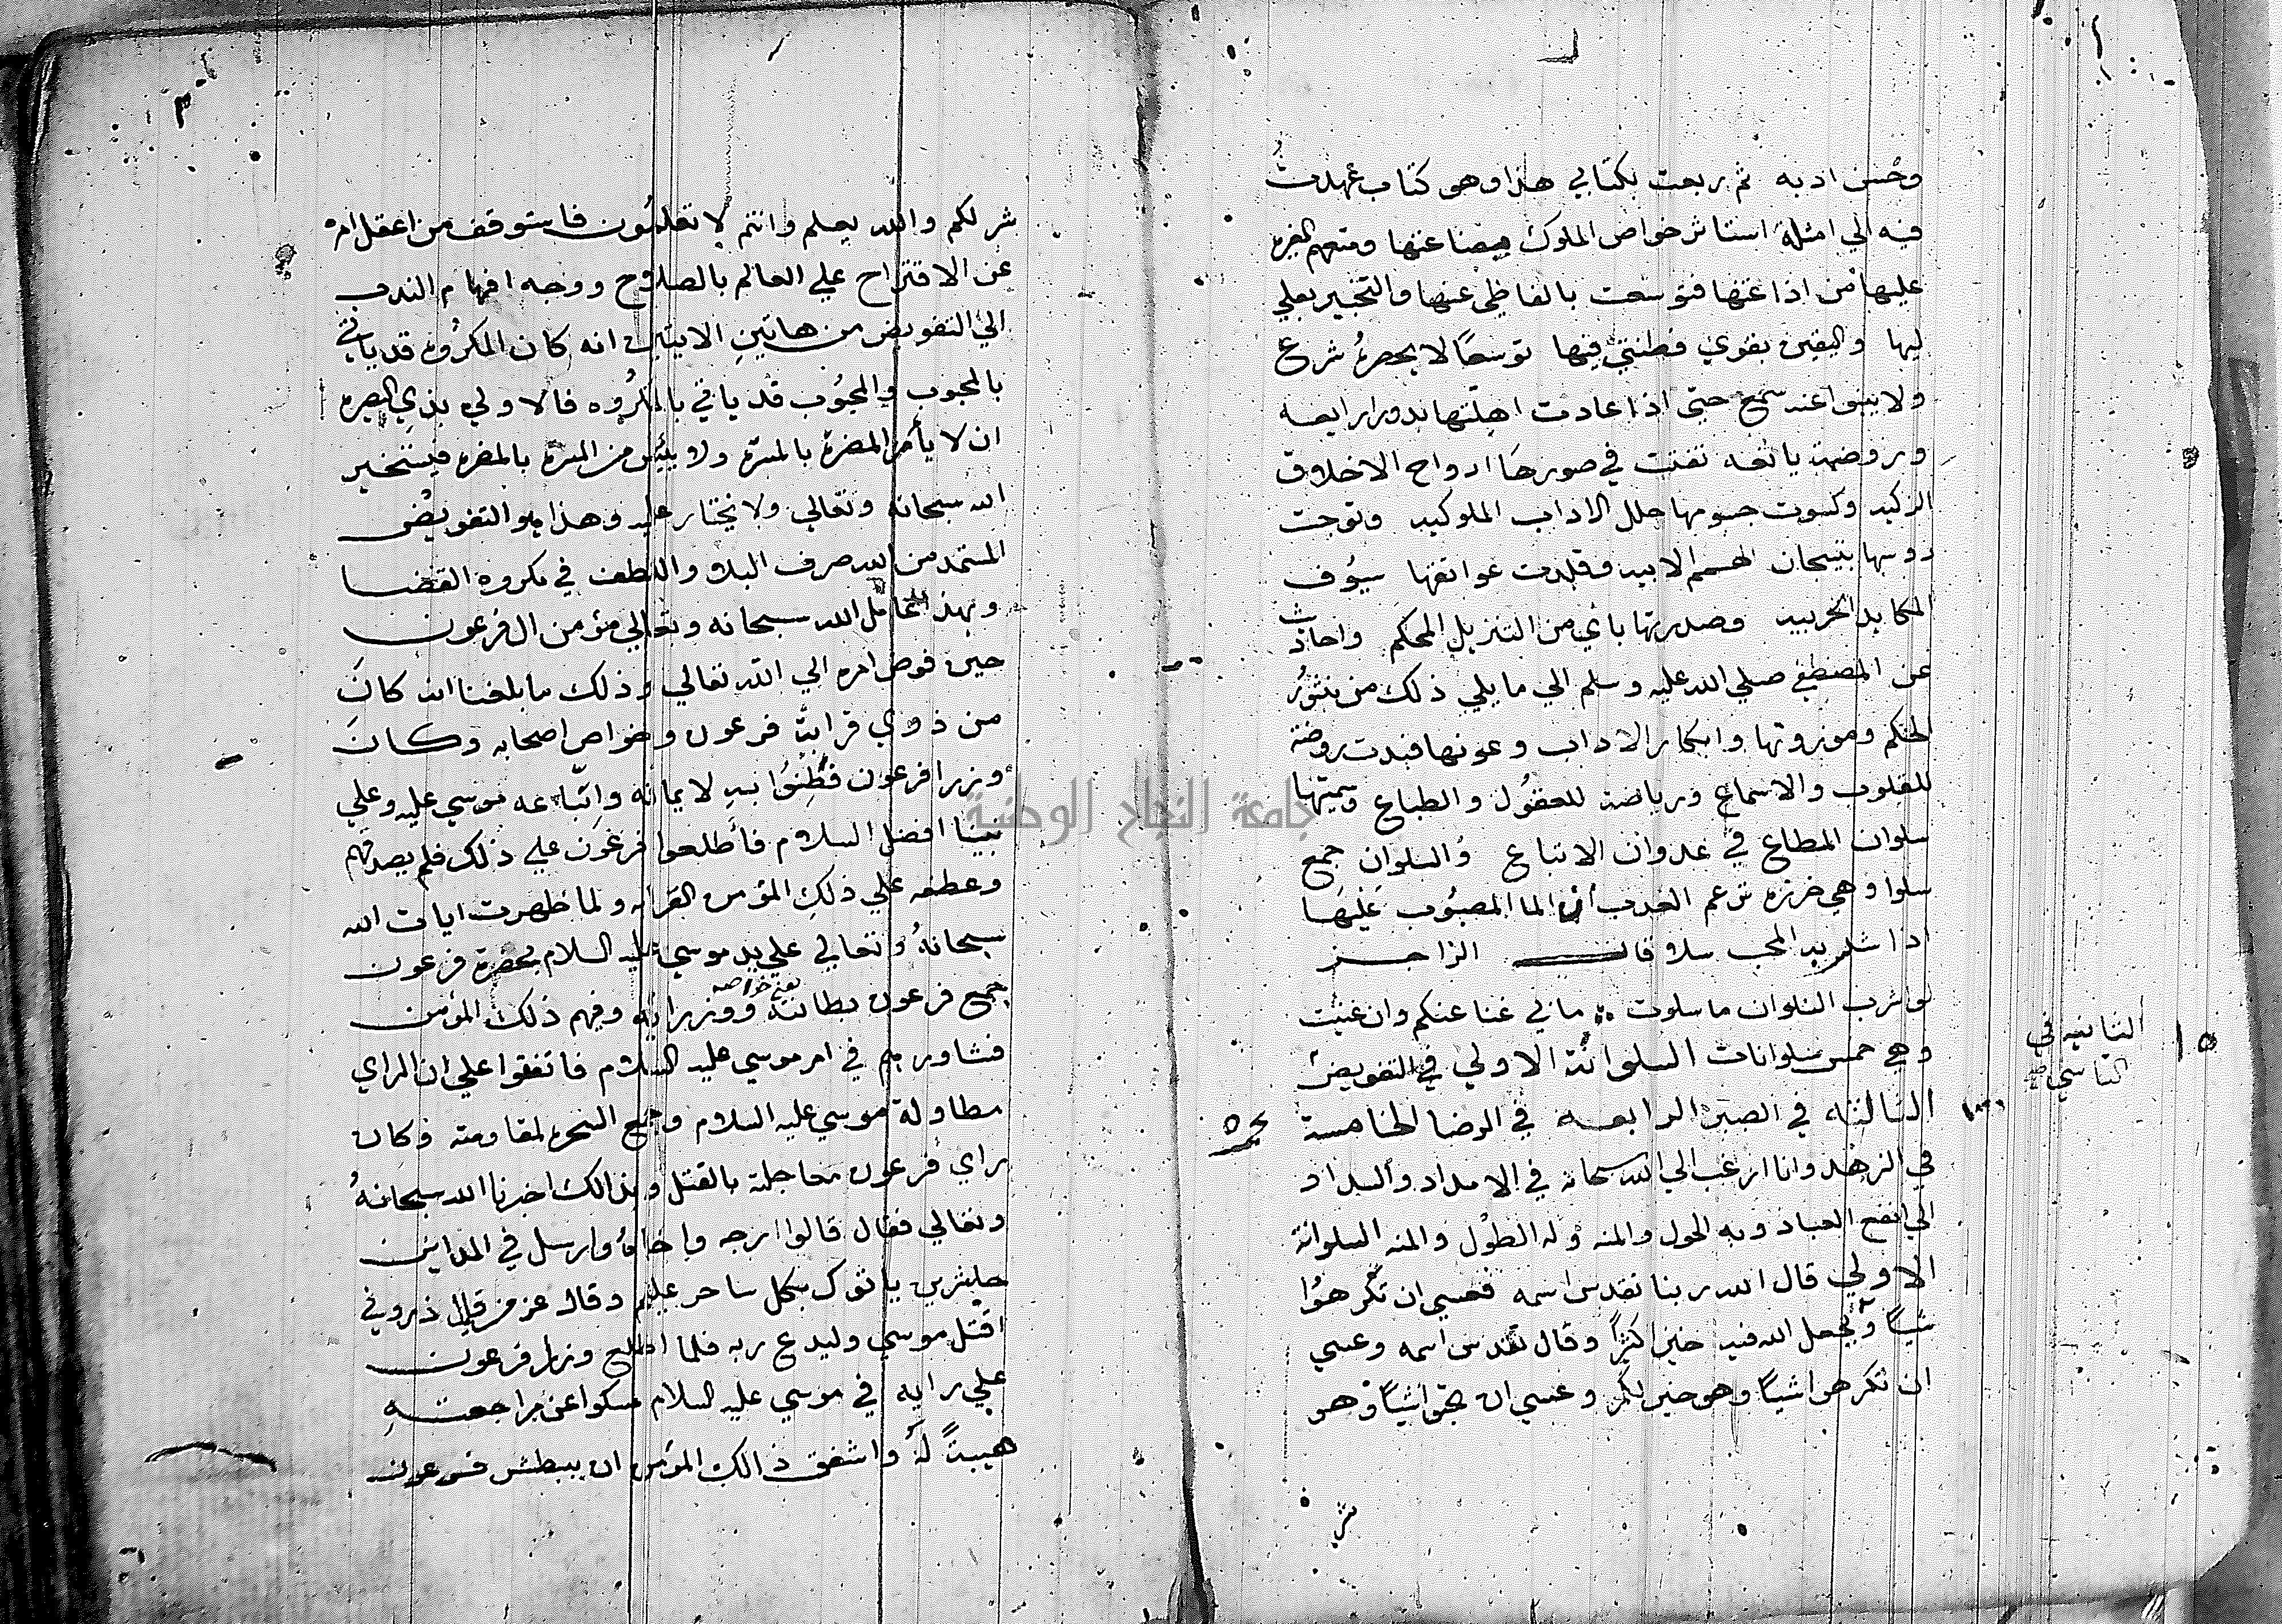 وحسن ادبه ثم ربعت بكتابي هذا وهو كتاب عمدت
فيه الي امثلة استاثر خواص الملوك بصناعتها ومنعهم الغيره
عليها من اذاعتها فتوسعت بالفاظي عنها والتخير يعلي
ليها واليقين بقوي فطنتي فيها توسعا لا يحصره شرع
ولا ينبوا عنه سمع حتي اذا عادت اهلتها بدورا رايعه
وروضها يانعه نفثت في صورها ارواح الاخلاق
الزكيه وكسوت جسومها حلل الاداب الملوكيه وتوجت
روسها بتيجان الهمم الابيه وقلدت عواتقها سيوف
المكايد الحربيه وصدرتها باي من التنزيل المحكم واحاديث
عن المصطفي صلي الله عليه وسلم الي ما يلي ذلك من منثور
الحكم وموزونها وابكار الاداب وعونها فبدت روضة
للقلوب والاسماع ورياضة للعقول والطباع وسميتها
سلوان المطاع في عدوان الاتباع والسلوان جمع
سلوا وهي خرزه تزعم العرب ان الما المصبوب عليها
اذا شربه المحب سلا قال الراجز
لو اشرب السلوان ما سلوت ما بي غنا عنكم وان غنيت
وهي خمس سلوانات السلوانة الاولي في التفويض
الثانيه في
التاسي صح
الثالثه في الصبر الرابعه في الرضا الخامسة
في الزهد وانا ارغب الي الله سبحانه في الامداد والسداد
الي انفع العباد وبه الحول والمنه وله الطول والمنه السلوانة
الاولي قال الله ربنا تقدس اسمه فعسي ان تكرهوا
شيا ويجعل الله فيه خيرا كثيرا وقال تقدس اسمه وعسي
ان تكرهوا شيا وهو خير لكم وعسي ان تحبوا شيا وهو
شر
٣
شر لكم والله يعلم وانتم لا تعلمون فاستوقف من اعقل امره
عن الاقتراح علي العالم بالصلاح ووجه افهام الندب
الي التفويض من هاتين الايتين انه كان المكروه قد ياتي
بالمحبوب والمحبوب قد ياتي بالمكروه فالاولي بذي البصيره
ان لا يأمن المضرة بالمسرة ولا ييئس من المسرة بالمضره فيستخير
الله سبحانه وتعالي ولا يختار عليه وهذا هو التفويض
المستمد من الله صرف البلا واللطف في مكروه القضا
وبهذا عامل الله سبحانه وتعالي مؤمن ال فرعون
حين فوض امره الي الله تعالي وذلك ما بلغنا انه كان
من ذوي قرابة فرعون وخواص اصحابه وكان
وزرا فرعون فطنوا به لايمانه واتباعه موسي عليه وعلي
نبينا افضل السلام فأطلعوا فرعون علي ذلك فلم يصدقهم
وعطفه علي ذلك المؤمن القرابه ولما ظهرت ايات الله
سبحانه وتعالي علي يد موسي عليه السلام بحضرة فرعون
جمع فرعون بطانته يعني خواصه ووزرائه وفيهم ذلك المؤمن
فشاورهم في امر موسي عليه السلام فاتفقوا علي ان الراي
مطاولة موسي عليه السلام وجمع السحره لمقاومته وكان
راي فرعون معاجلته بالقتل وبذالك اخبرنا الله سبحانه
وتعالي فقال قالوا ارجه واخاه وارسل في المداين
حاشرين ياتوك بكل ساحر عليم وقال عز من قايل ذروني
اقتل موسي وليدع ربه فلما اطلع وزرا فرعون
علي رايه في موسي عليه السلام مسكوا عن مراجعته
هيبة له واشفق ذالك المؤمن ان يبطش فرعون
جامعة النجاح الوطنية